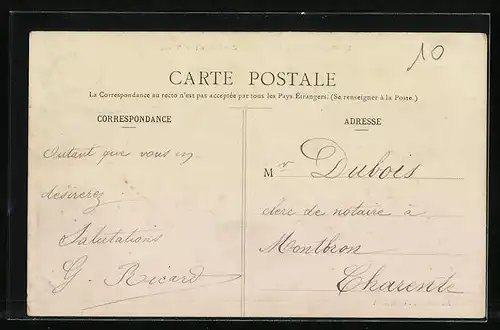 10
CARTE POSTALE
La Correspondance au recto n'est pas acceptée par tous les Pays Étrangers. (Se renseigner à la Poste.)
CORRESPONDANCE
Autant que vous en
désirerez
Salutations
G. Ricard
ADRESSE
Mr Dubois
clerc de notaire à
Montbron
Charente